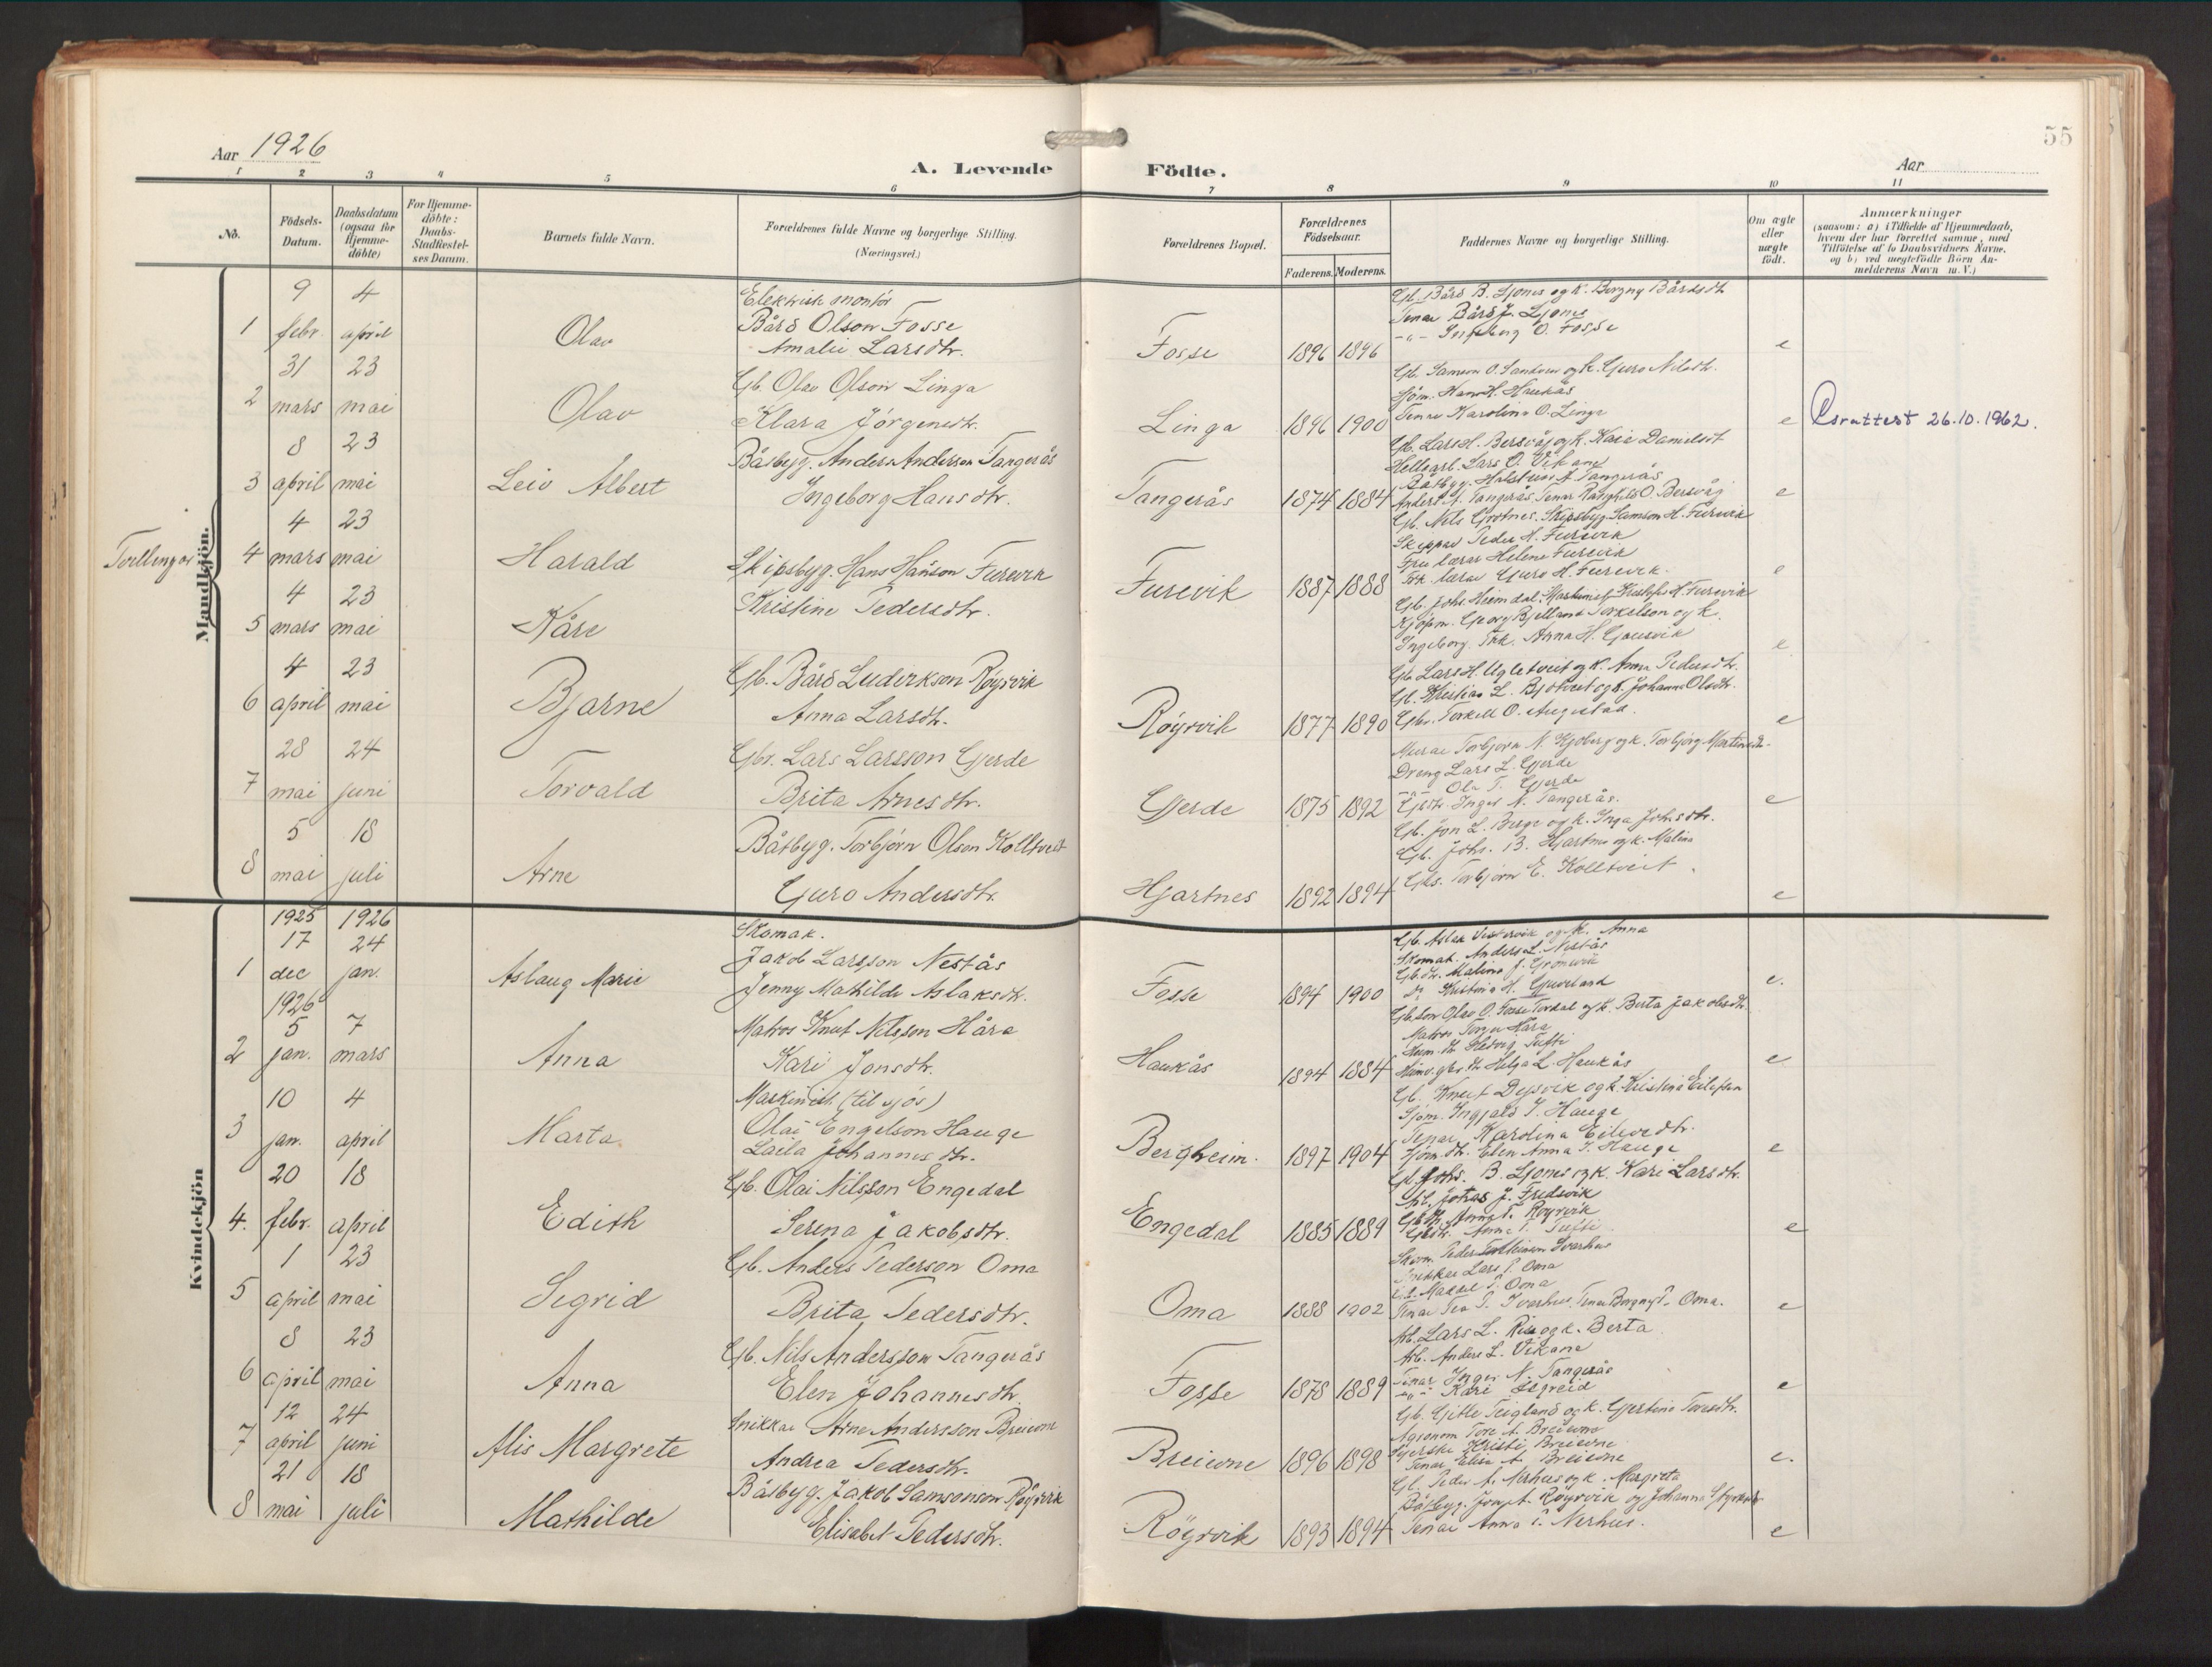 55
Aar 1926
A. Levende Födte.
Aar
1 2 3 4 5 6 7 8 9 10 11
No.
Födsels-Datum.
Daabsdatum (ogsaa for Hjemme-döbte)
For Hjemme-döbte: Daabs-Stadfæstel-ses Datum.
Barnets fulde Navn.
Forældrenes fulde Navne og borgerlige Stilling. (Næringsvei.)
Forældrenes Bopæl.
Forældrenes Födselsaar.
Faderens. Moderens.
Faddernes Navne og borgerlige Stilling.
Om ægte eller uægte födt.
Anmærkninger
(saasom: a) i Tilfælde af Hjemmedaab, hvem der har forrettet samme, med Tilföielse af to Daabsvidners Navne, og b) ved uægtefödte Börn An-melderens Navn m. V.)
Mandkjön.
1 9 febr. 4 april Olav
Elektrisk montör
Bård Olson Fosse
Amalie Larsdtr.
Fosse 1896 1896
Gb. Bård B. Ljones og k. Borgny Bårdsdt
Tenar Bård J. Ljones
-"- Ingeborg O. Fosse
e
2 31 mars 23 mai Olav
Gb. Olav Olson Linga
Klara Jörgensdtr.
Linga 1896 1900
Gb. Samson O. Sandven og k. Guro Nilsdtr.
Sjöm. Hans H. Haukås
Tenar Karolina O. Linga
e 26.10.1962.
3 8 april 23 mai Leiv Albert
Båtbyg. Anders Anderson Tangerås
Ingeborg Hansdtr.
Tangerås 1874 1884
Gb. Lars H. Bersvåg og k. Kaia Danielsdt
Lars O. Vikane
Båtbyg. Halstein A. Tangerås
Anders A. Tangerås Tenar Ragnhild O. Bersvåg
e
Tvillingar
4 4 mars 23 mai Harald
Skipsbyg. Hans Hanson Furevik
Kristine Pedersdtr.
Furevik 1887 1888
Gb. Nils Grotnes. Skipsbyg. Samson H. Furevik
Skippar Peder H. Furevik
Fru lærar Helene Furevik
Frk. lærar Guro H. Furevik.
e
5 4 mars 23 mai Kåre
Gb. Johs. Heimdal. Kristofer H. Furevik
Kjöpm. Georg Bjelland Torkelson og k.
Ingeborg. Frk. Anna H.
e
6 4 april 23 mai Bjarne
Gb. Bård Ludvikson Röyrvik
Anna Larsdtr.
Röyrvik 1877 1890
Gb. Lars H. Ugletveit og k. Anna Pedersdtr.
Gb. Kristian L. Bjotveit og k. Johanna Olsdtr.
Gbr. Torkell O. Augestad.
e
7 28 mai 24 juni Torvald
Gbr. Lars Larsson Gjerde
Brita Arnesdtr.
Gjerde 1875 1892
Murar Torbjörn N. Kjoberg og k. Torbjörg Martinsdtr.
Dreng Lars L. Gjerde
-"- Ola T. Gjerde
Gbdtr. Inger N. Tangerås.
e
8 5 mai 18 juli Arne
Båtbyg. Torbjörn Olson Kolltveit
Guro Andersdtr.
Hjartnes 1892 1894
Gb. Jon L. Berge og k. Inga Johsdtr.
Gb. Johs. B. Hjartnes og k. Malina
Gbs. Torbjörn E. Kolltveit
e
Kvindekjön
1 1925 17 dec 1926 24 jan. Aslaug Marie
Skomak.
Jakob Larsson Nestås
Jenny Mathilde Aslaksdtr.
Fosse 1894 1900
Gb. Aslak Vestervik og k. Anna
Skomak. Anders L. Nestås
Gb.dtr. Malina J. Grönsvik
Do Kristina H. Gjuvsland
e.
2 1926 5 jan. 7 mars Anna
Matros Knut Nilsson Håra
Kari Jonsdtr.
Haukås 1894 1884
Gb.son Olav O. Fosse Tordal og k. Berta Jakobsdtr.
Matros Torger Håra
Hedvig Tufti
Heimv. gbr.dt Helga L. Haukås
e
3 10 jan. 4 april Marta
Maskinist. (til sjös)
Olai Engelson Hauge
Laila Johannesdtr.
Bergheim. 1897 1904
Gb. Knut Dysvik og k. Kristina Eilefsen
Sjöm. Ingjald I. Hauge
Tenar Karolina Eilevsdtr.
Sjöm.dtr. Elen Anna I. Hauge
e
4. 20 febr. 18 april Edith
Gb. Olai Nilsson Engedal
Serena Jakobsdtr.
Engedal 1885 1889
Gb. Johs. B. Ljones og k. Kari Larsdtr.
Arb. Johas J. Fredsvik
Gb.dt. Anna Röyrvik
Gb.dtr. Anna T. Tufti
e
5 1 april 23 mai Sigrid
Gb. Anders Pederson Oma
Brita Pedersdtr.
Oma 1888 1902
Peder Torkelsson Ivarhus
Snikkar Lars P. Oma
Makkel P. Oma
Tenar Tea P. Ivarhus. Tenar Borgny P. Oma.
e
6 8 april 23 mai Anna
Gb. Nils Andersson Tangerås
Elen Johannesdtr.
Fosse 1878 1889
Arb. Lars L. Risa og k. Berta
Arb. Anders L. Vikane
Tenar Inger N. Tangerås
-"- Kari Esgreid
e
7 12 april 24 juni Alis Margrete
Snikkar Arne Andersson Breievne
Andrea Pedersdtr.
Breievne 1896 1898
Gb. Gitle Teigland og k. Gjertine Toresdtr.
Agronom Tore A. Breievne
Syerske Kristi Breievne
Tenar Elisa A. Breievne
e.
8 21 mai 18 juli Mathilde
Båtbyg. Jakob Samsonson Röyrvik
Elisabet Pedersdtr.
Röyrvik 1893 1894
Gb. Peder A. Nerhus og k. Margreta
Båtbyg. Jon A. Röyrvik og Johanna Styrksdtr
Tenar Anna P. Nerhus.
e